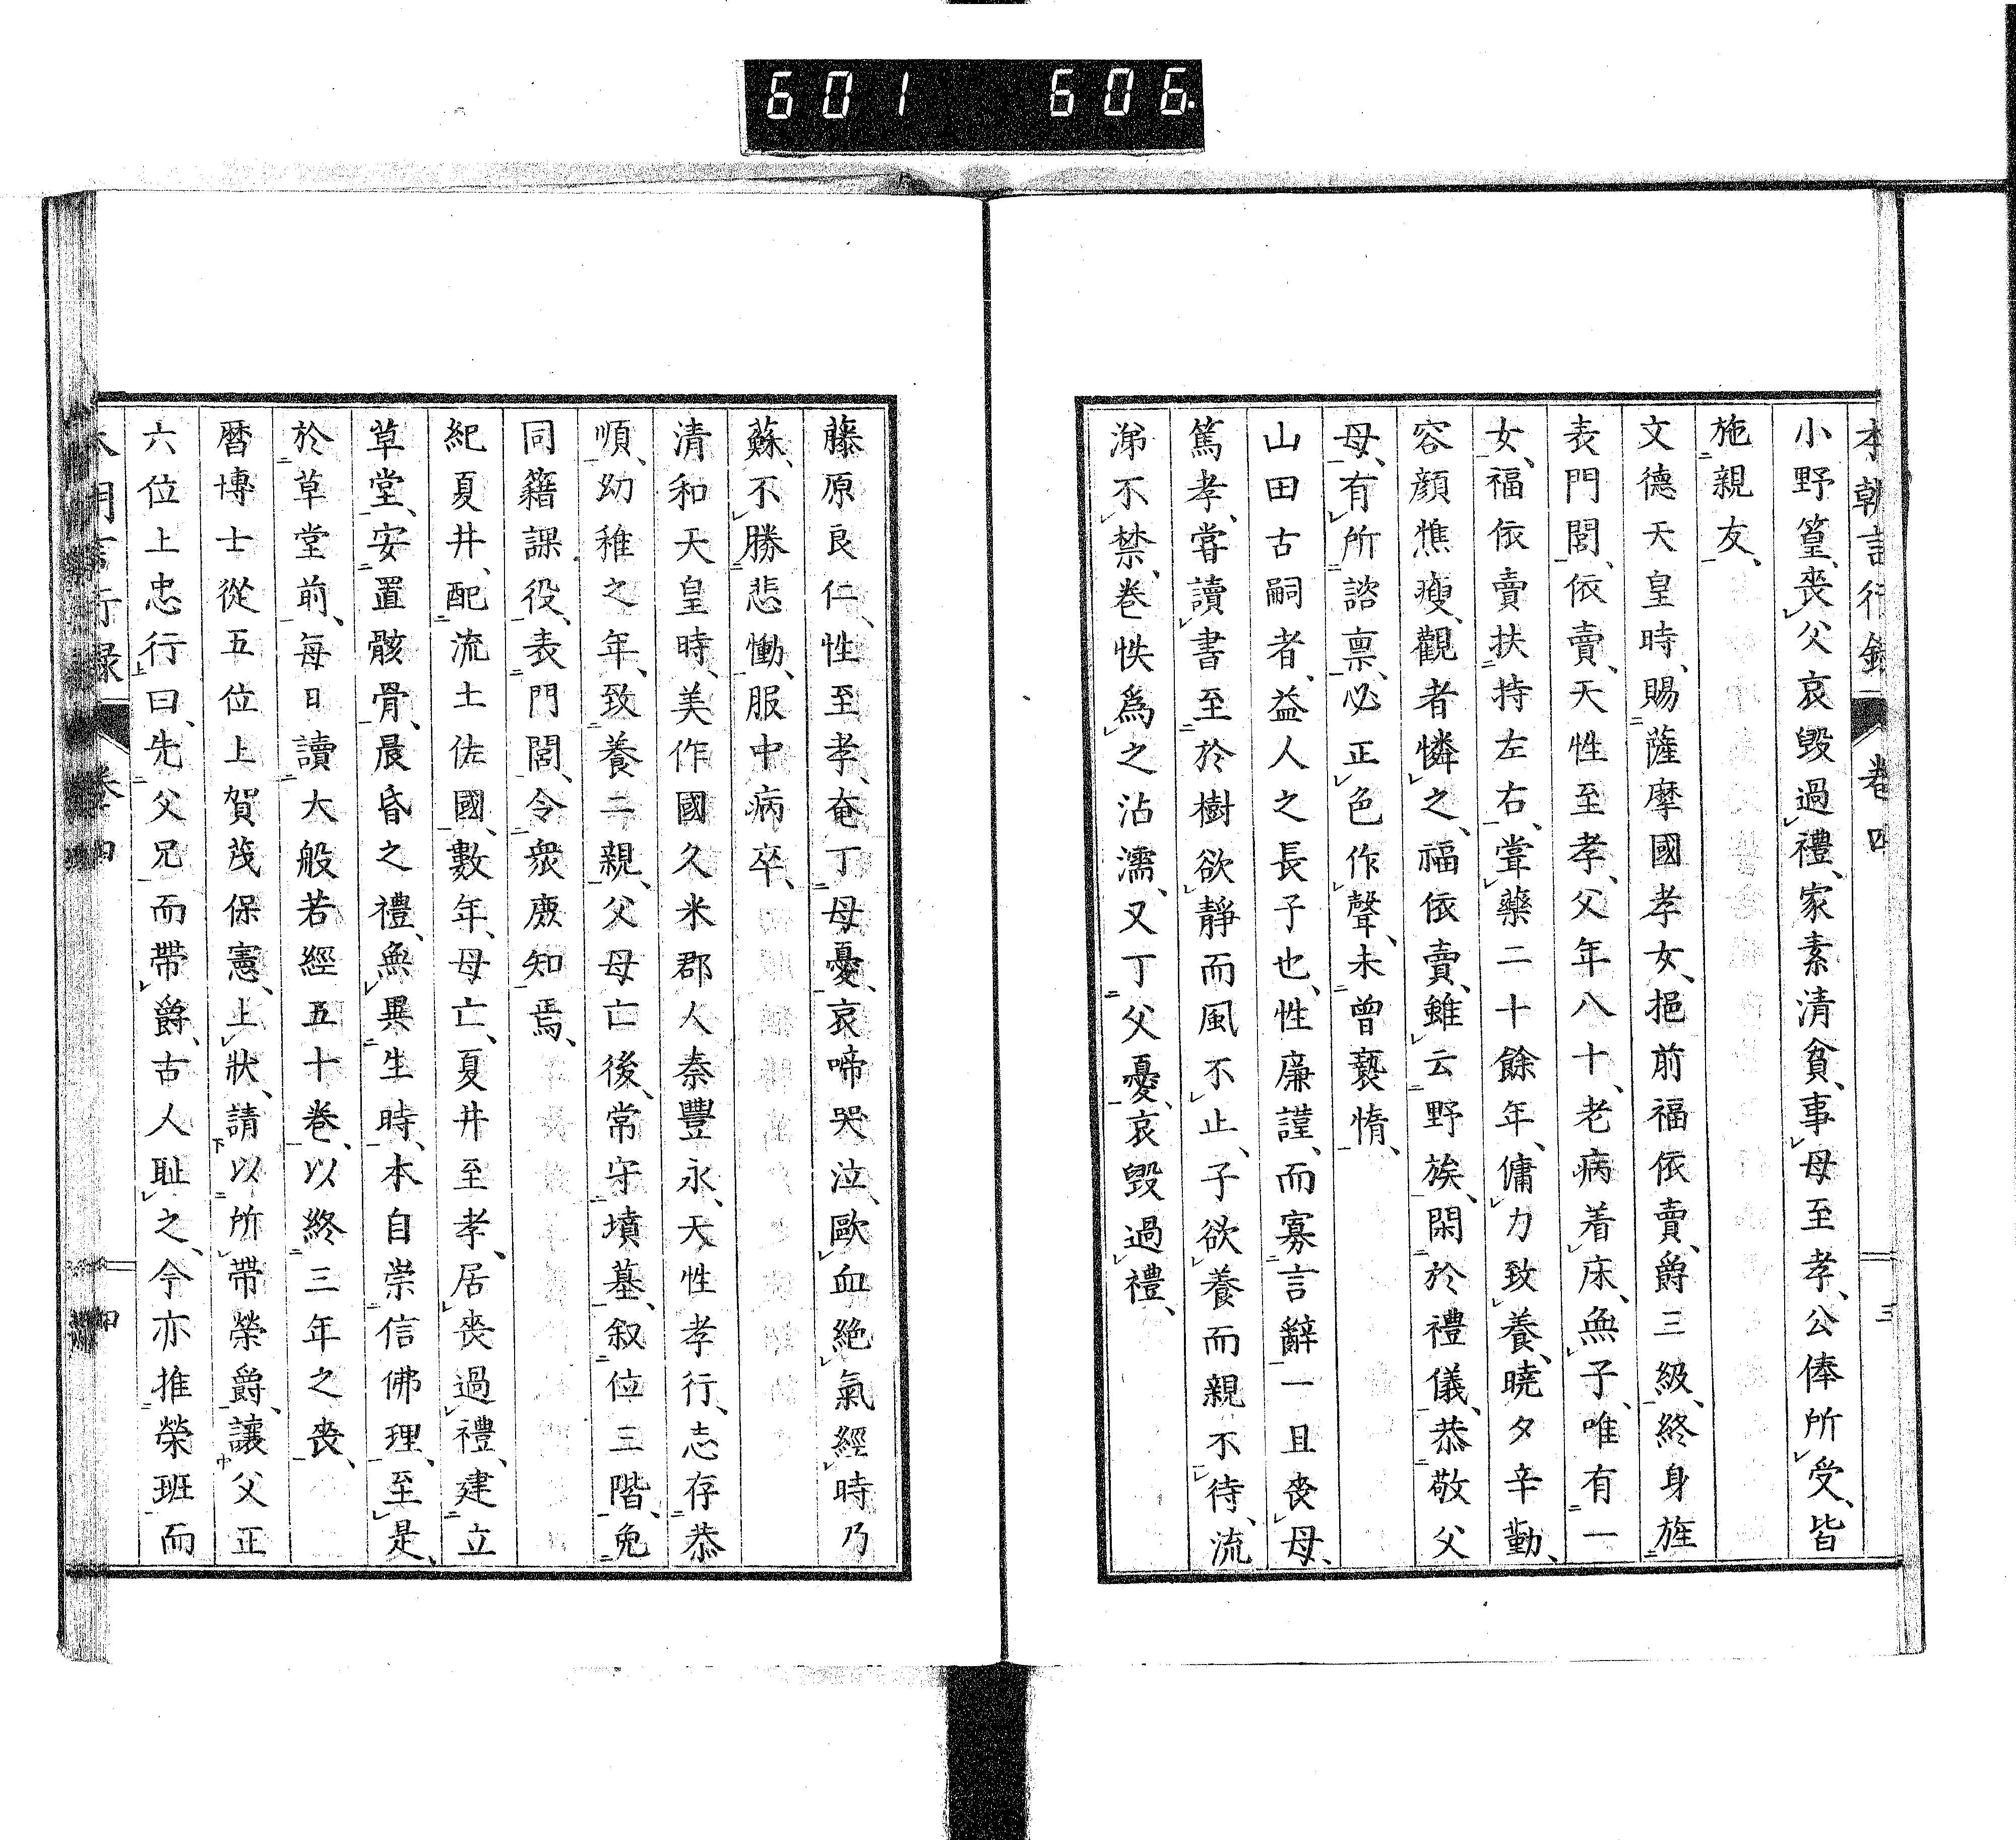 601 606.
本朝言行錄 卷四 三
小野篁、喪父哀毀過禮、家素清貧、事母至孝、公俸所受、皆
施親友、
文德天皇時、賜薩摩國孝女、挹前福依賣、爵三級、終身旌
表門閭、依賣、天性至孝、父年八十、老病着床、無子、唯有一
女、福依賣扶持左右、嘗藥二十餘年、傭力致養、曉夕辛勤、
容顏憔瘦、觀者憐之、福依賣、雖云野族、閑於禮儀、恭敬父
母、有所諮稟、必正色作聲、未曾褻惰、
山田古嗣者、益人之長子也、性廉謹、而寡言辭一且喪母、
篤孝、嘗讀書至於樹欲靜而風不止、子欲養而親不待、流
涕不禁、卷帙爲之沾濡、又丁父憂、哀毀過禮、
藤原良仁、性至孝、奄丁母憂、哀啼哭泣、歐血絶氣經時乃
蘇、不勝悲慟、服中病卒、
清和天皇時、美作國久米郡人秦豐永、天性孝行、志存恭
順、幼稚之年、致養二親、父母亡後、常守墳墓、叙位三階、免
同籍課役、表門閭、令衆庶知焉、
紀夏井、配流土佐國、數年、母亡、夏井至孝、居喪過禮、建立
草堂、安置骸骨、晨昏之禮、無異生時、本自崇信佛理、至是、
於草堂前、每日讀大般若經五十卷、以終三年之喪、
曆博士從五位上賀茂保憲、上狀、請以所帶榮爵、讓父正
六位上忠行曰、先父兄而帶爵、古人恥之、今亦推榮班而
本朝言行錄 卷四 四